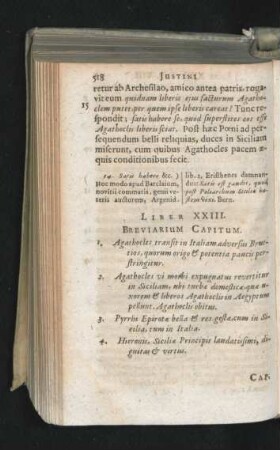 518 JUSTINI
retur ab Archesilao, amico antea patris, roga-
vit eum quidnam liberis ejus facturum Agatho-
15 clem putet, per quem ipse liberis careat? Tunc re-
spondit; satis habere se, quod superstites eos esse
Agathoclis liberis sciat. Post hæc Pœni ad per-
sequendum belli reliquias, duces in Siciliam
miserunt, cum quibus Agathocles pacem æ-
quis conditionibus fecit.
14. Satis habere &c.
Hoc modo apud Barclaium,
novitii commatis, genii ve-
teris auctorem, Argenid.
lib. 1, Eristhenes
satis est gaudii, quod
post Bern.
LIBER XXIII.
BREVIARIUM CAPITUM.
1. Agathocles transit in Italiam adversus Brut-
tios, quorum origo & potentia paucis per-
stringitur.
2. Agathocles vi morbi expugnatus revertitur
in Siciliam, ubi turbæ domesticæ, quæ u-
xorem & liberos Agathoclis in Ægyptum
pellunt. Agathoclis obitus.
3. Pyrrhi Epirotæ bella & res gestæ cum in Si-
cilia, tum in Italia.
4. Hieronis, Siciliæ Principis laudatissimi, di-
gnitas & virtus.
CAP.